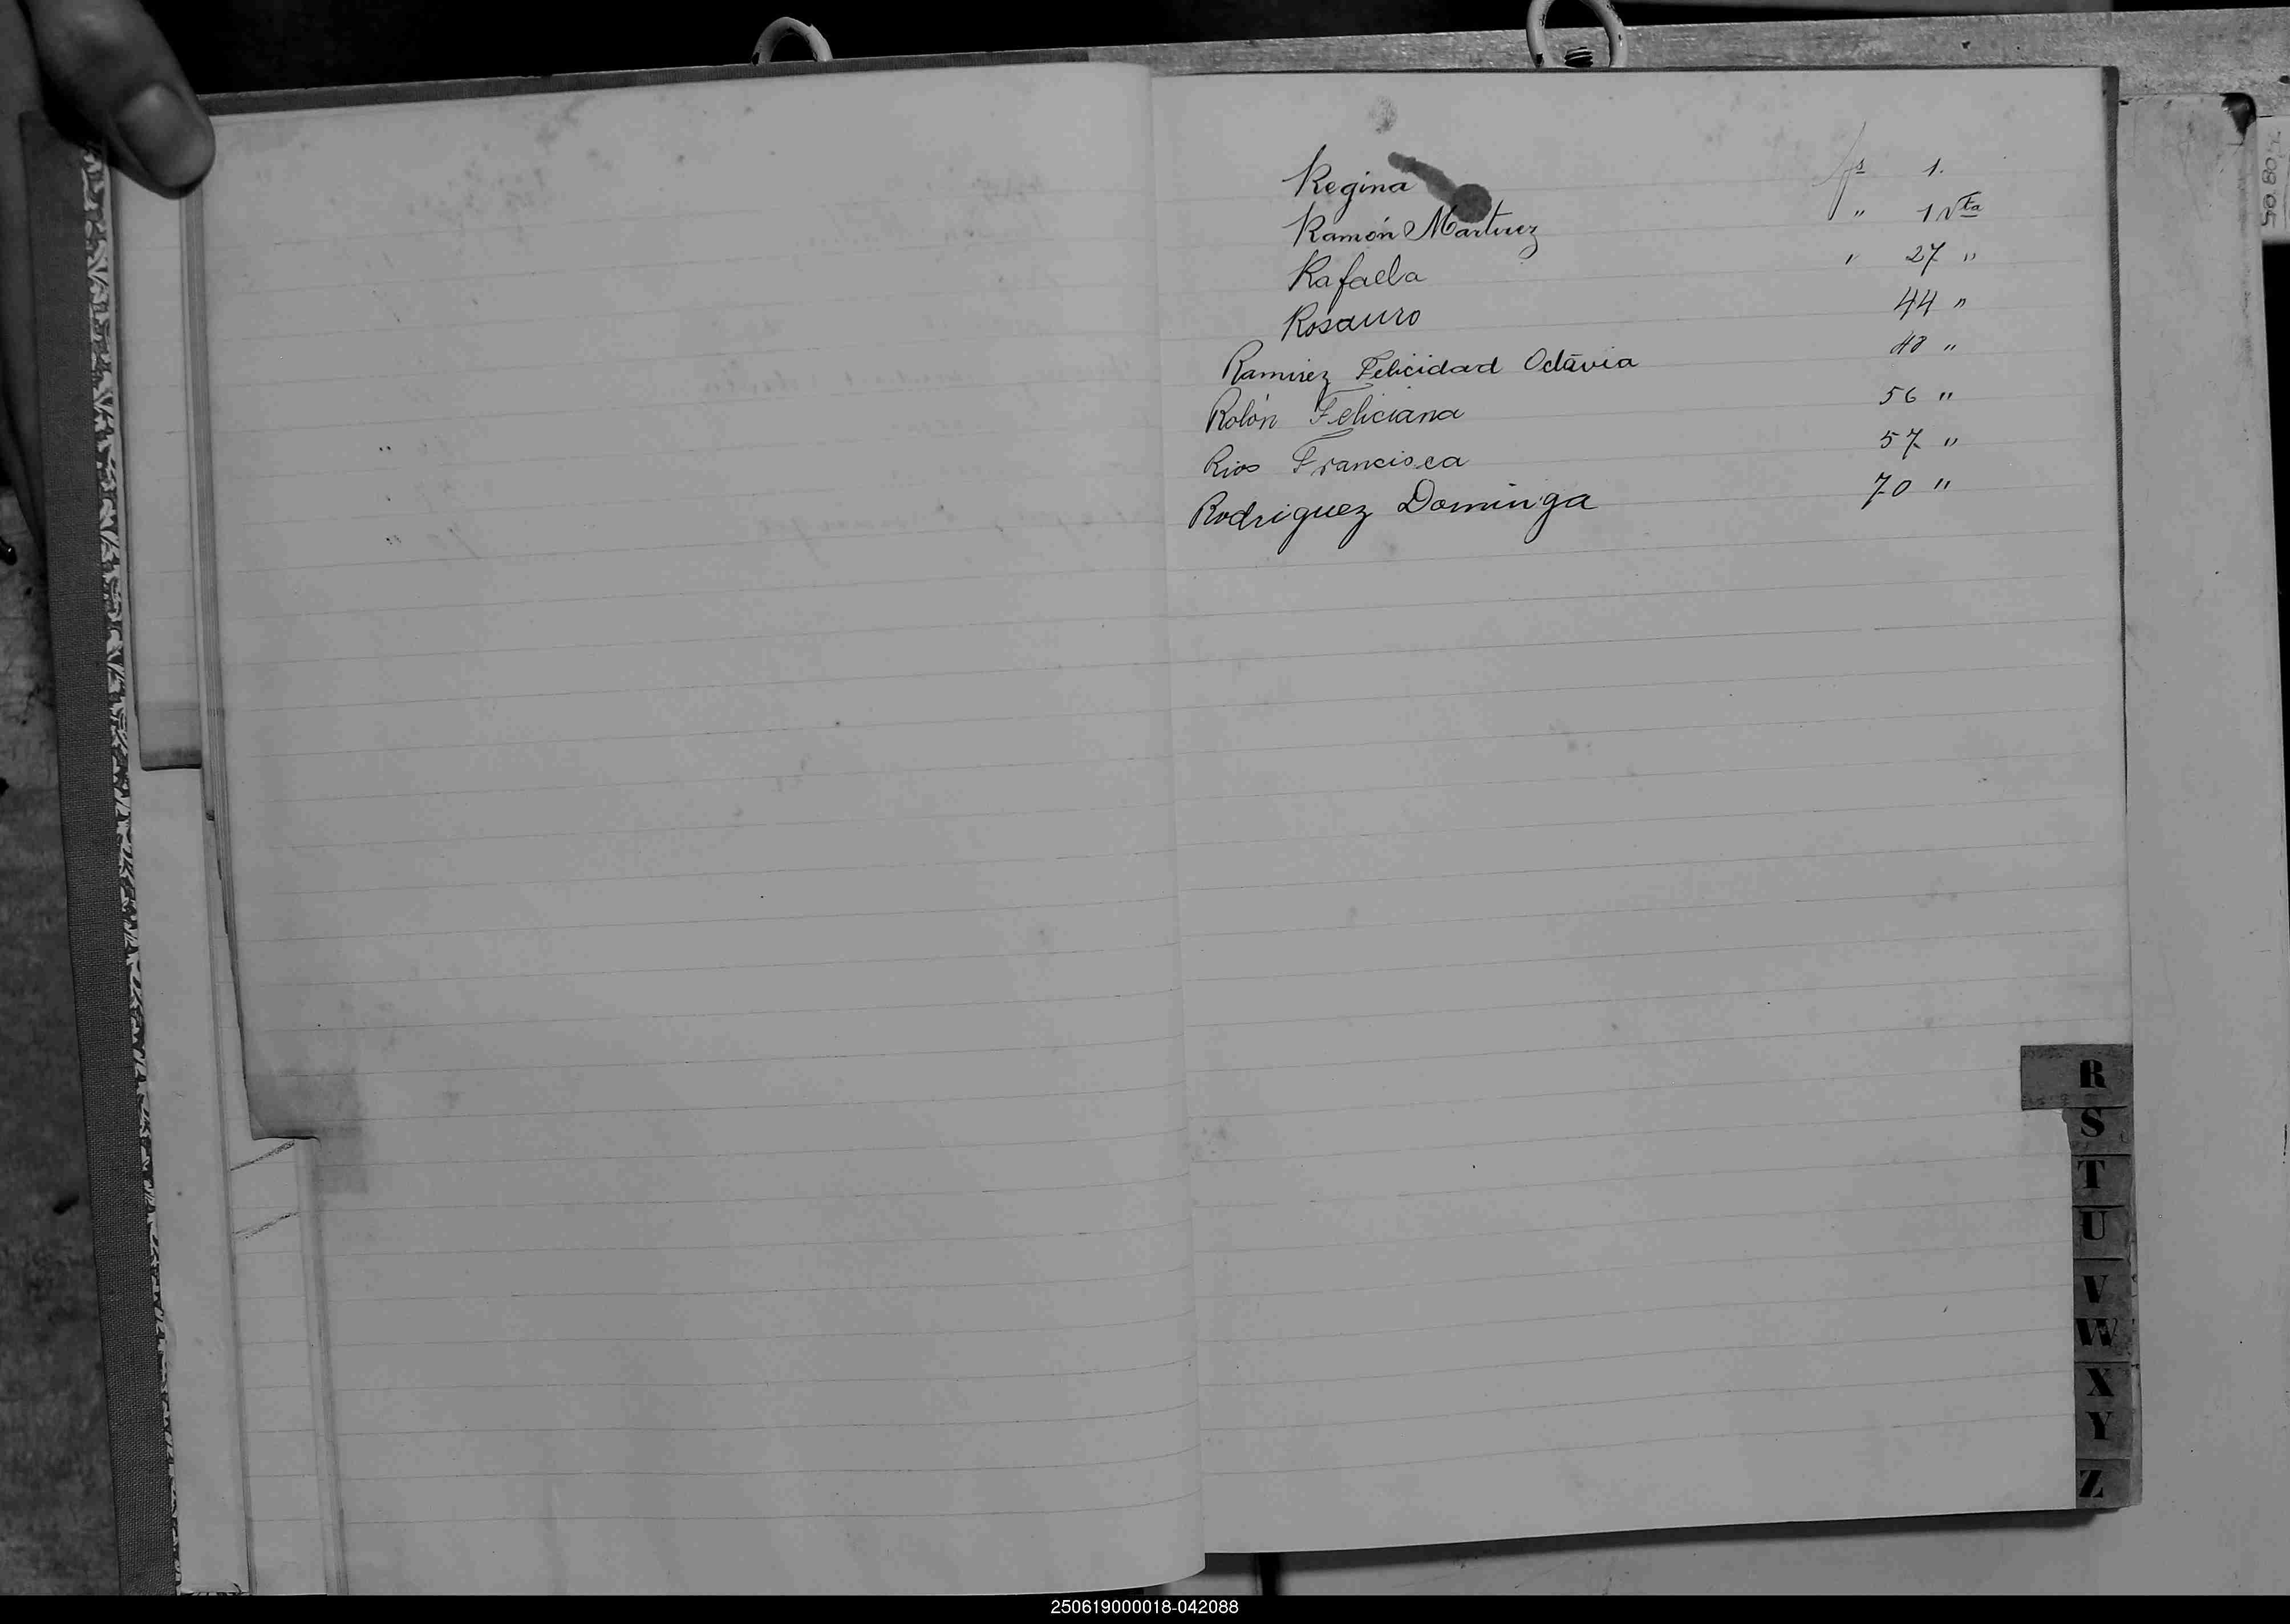 Regina fs 1.
Ramón Martinez " 1 Vta
Rafaela " 27 "
Rosauro 44 "
Ramirez Felicidad Octavia 48 "
Rolón Feliciana 56 "
Rios Francisca 57 "
Rodriguez Dominga 70 "
R
S
T
U
V
W
X
Y
Z
250619000018-042088